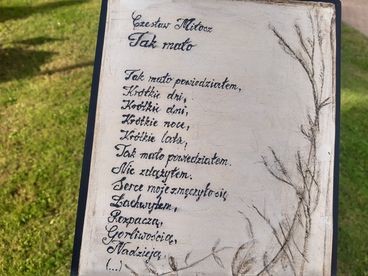 Czesław Miłosz
Tak mało
Tak mało powiedziałem,
Krótkie dni,
Krótkie dni,
Krótkie noce,
Krótkie lata,
Tak mało powiedziałem.
Nie zdążyłem.
Serce moje zmęczyło się
Zachwytem,
Rozpaczą,
Gorliwością,
Nadzieją.
(...)